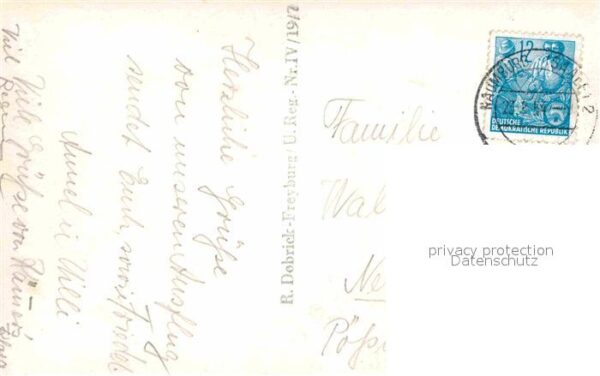 Herzliche Grüße
von unserem Ausflug
sendet Euch, sowie Friedel
Annel u. Willi
Viele Grüße von
Viel
R. Dobrick-Freyburg U. Reg.-Nr. IV/19/2
Familie
Wal
Ne
Pöß
NAUMBURG
DEUTSCHE
DEMOKRATISCHE REPUBLIK
5
privacy protection
Datenschutz